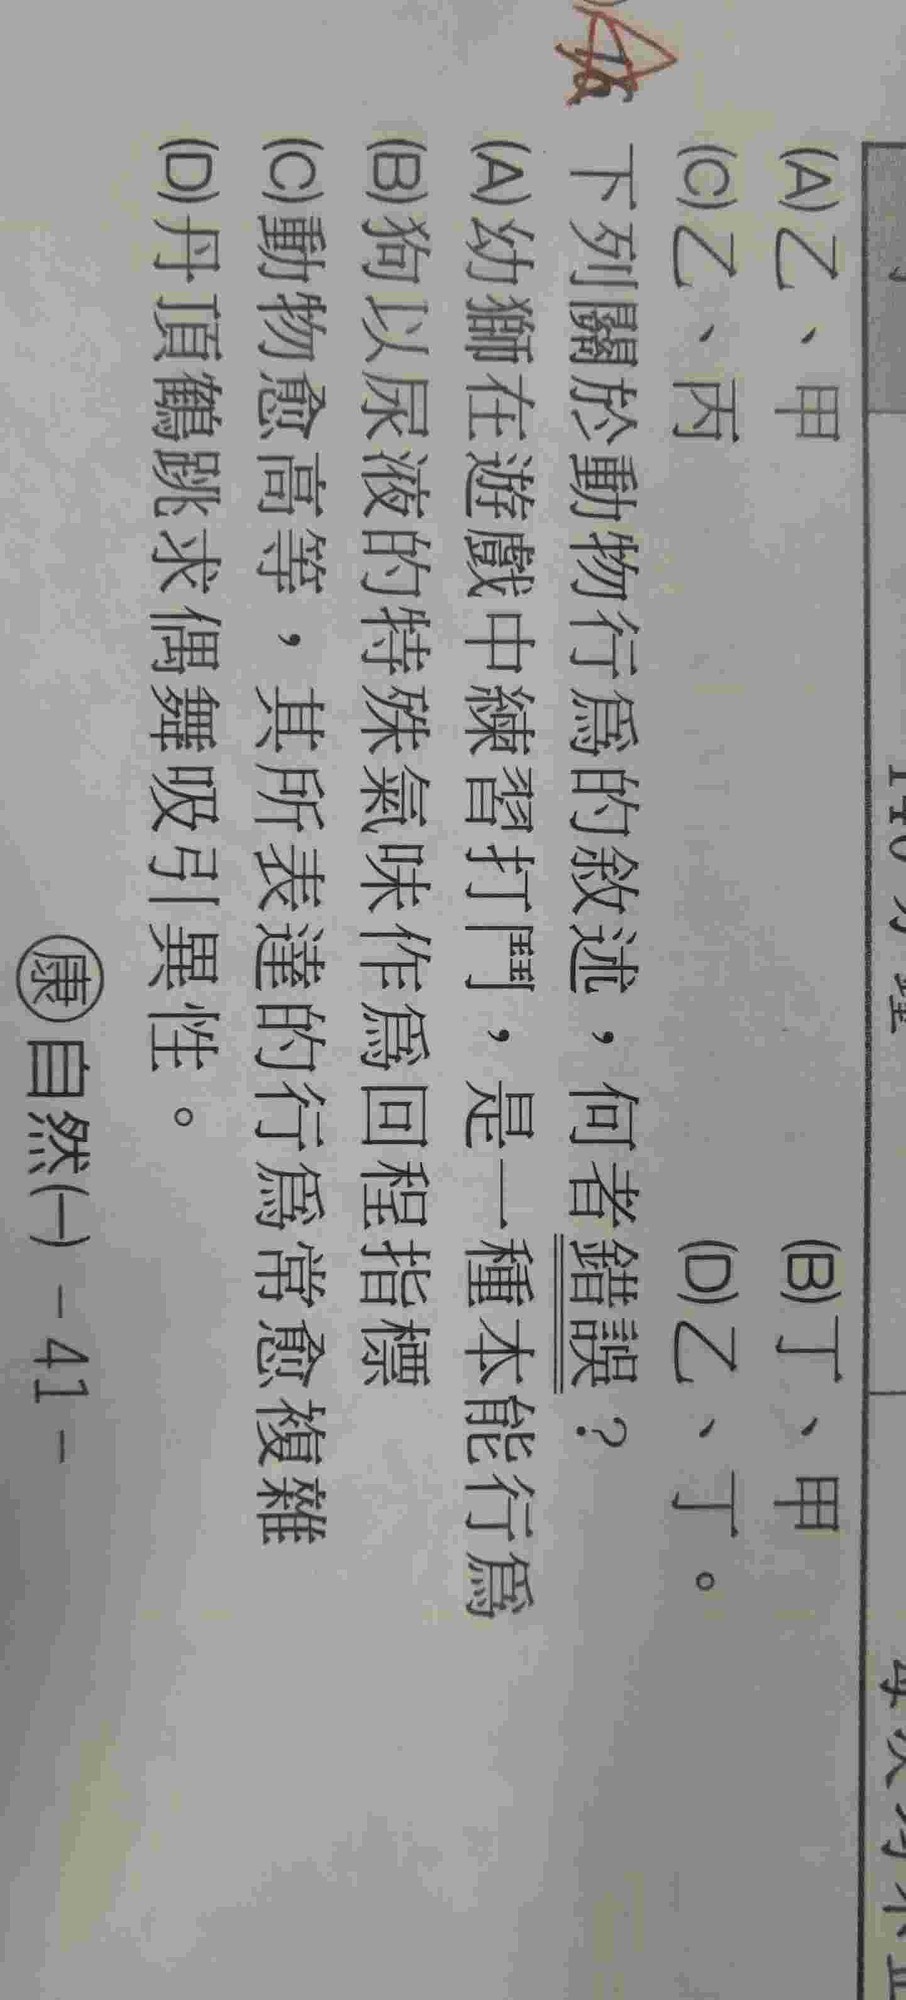 140分鐘
(A)乙、甲 (B)丁、甲
(C)乙、丙 (D)乙、丁。
下列關於動物行為的敘述，何者錯誤？
(A)幼獅在遊戲中練習打鬥，是一種本能行為
(B)狗以尿液的特殊氣味作為回程指標
(C)動物愈高等，其所表達的行為常愈複雜
(D)丹頂鶴跳求偶舞吸引異性。
康自然(一) －41－